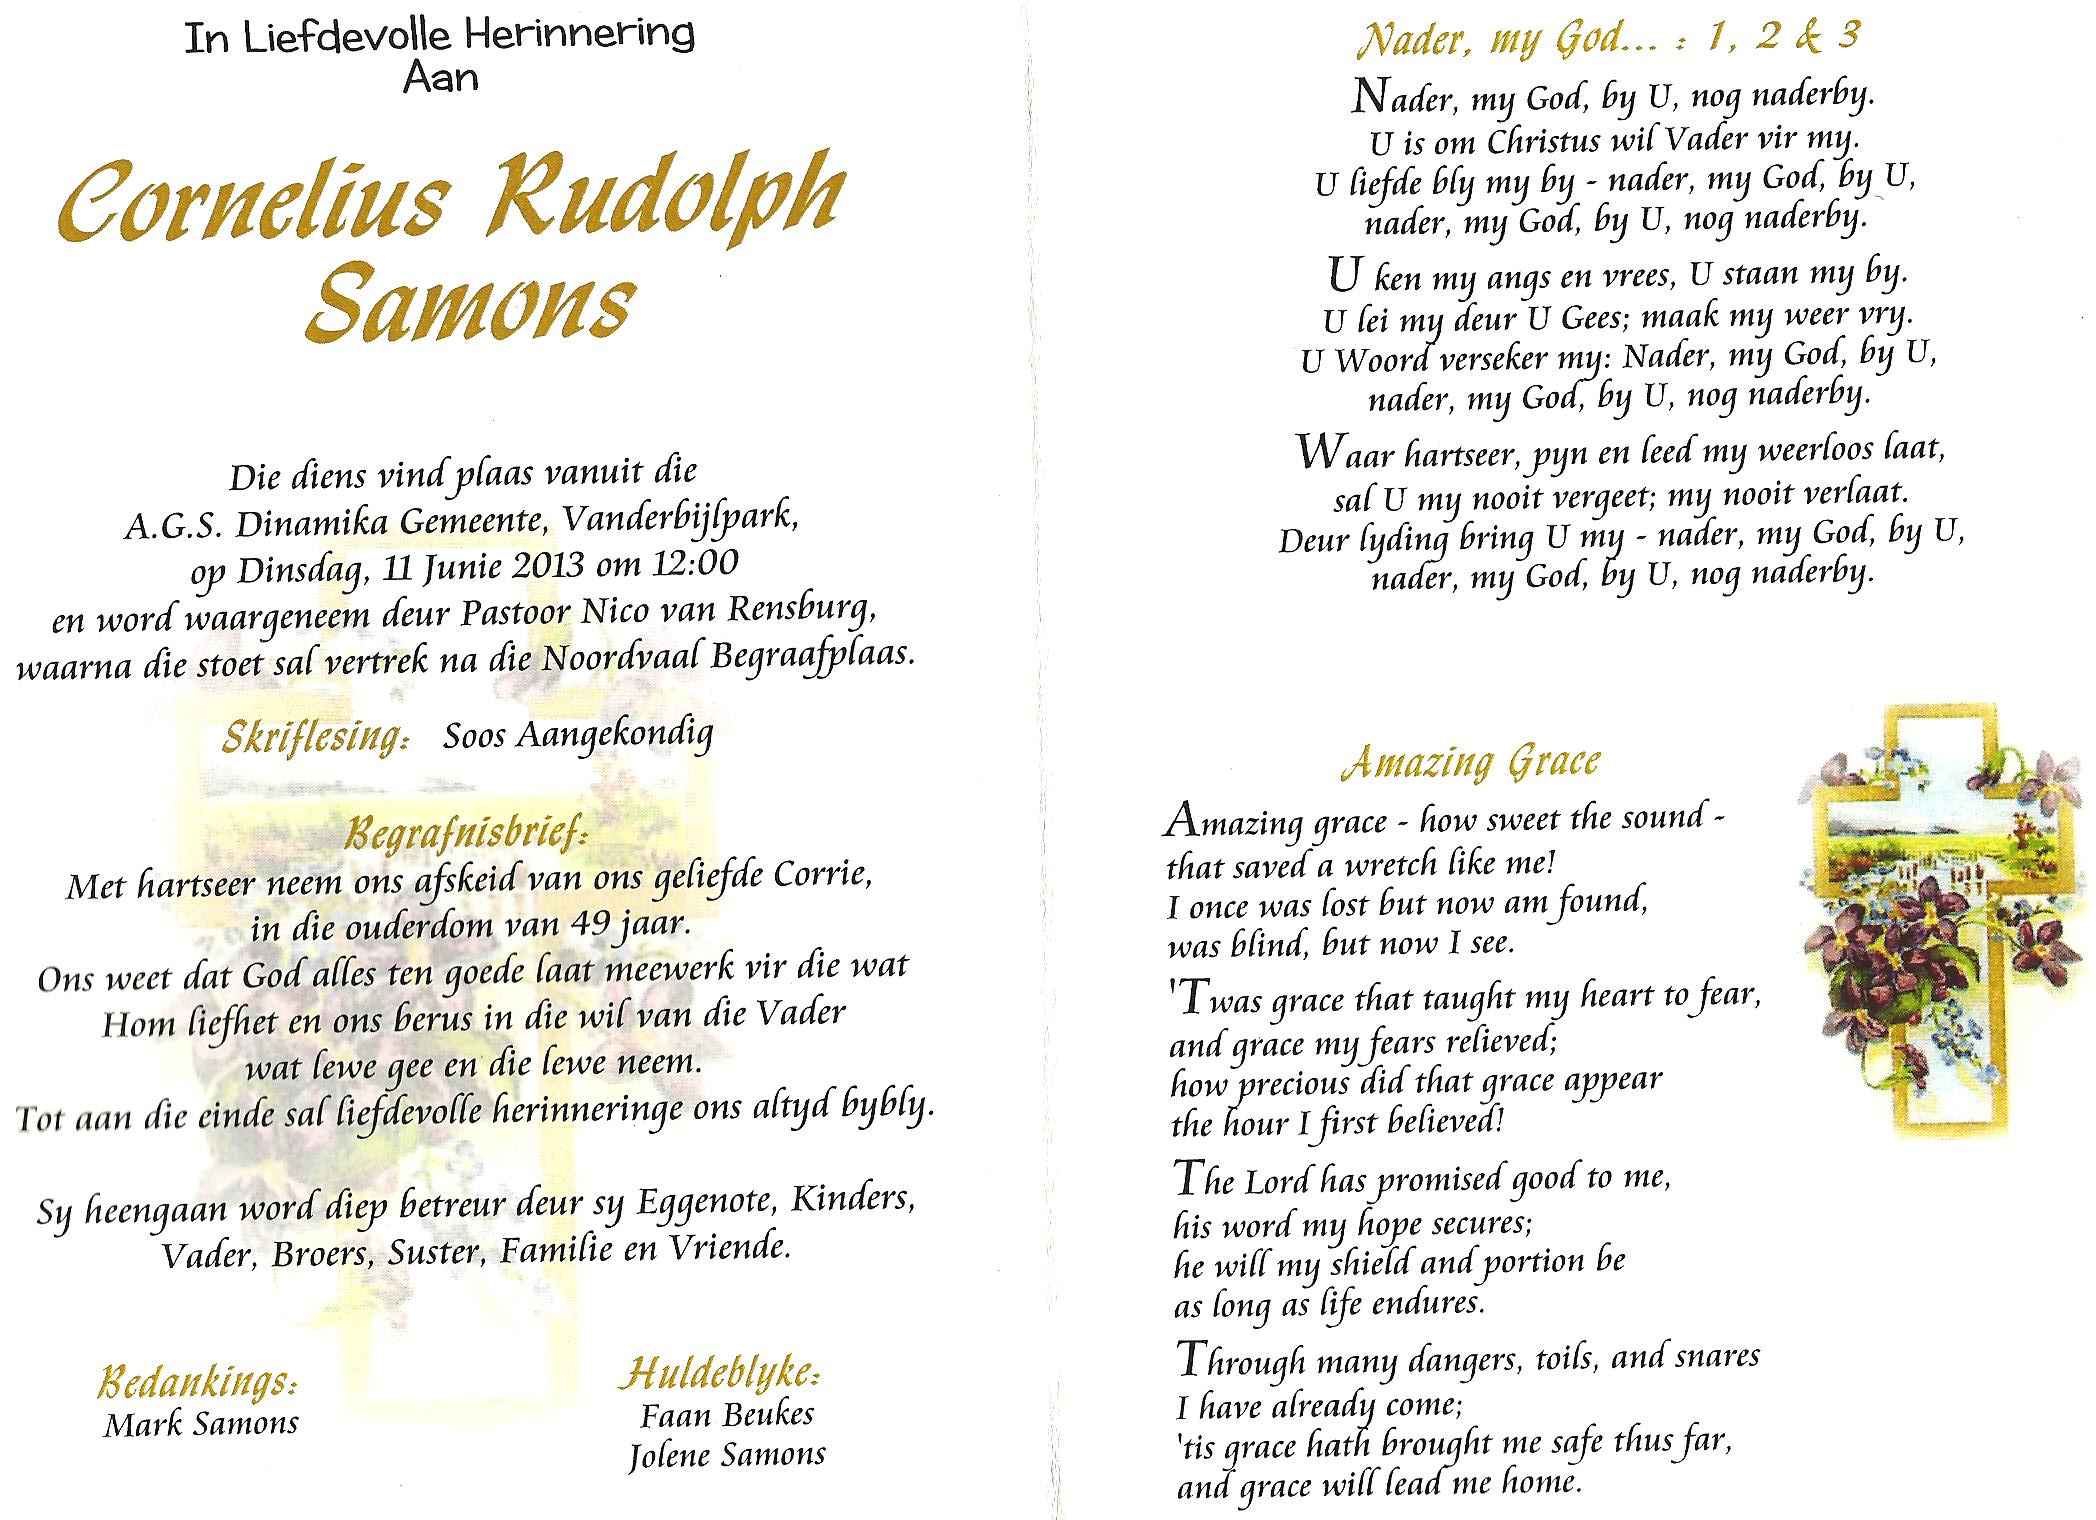 In Liefdevolle Herinnering
Aan
Cornelius Rudolph
Samons
Die diens vind plaas vanuit die
A.G.S. Dinamika Gemeente, Vanderbijlpark,
op Dinsdag, 11 Junie 2013 om 12:00
en word waargeneem deur Pastoor Nico van Rensburg,
waarna die stoet sal vertrek na die Noordvaal Begraafplaas.
Skriflesing: Soos Aangekondig
Begrafnisbrief:
Met hartseer neem ons afskeid van ons geliefde Corrie,
in die ouderdom van 49 jaar.
Ons weet dat God alles ten goede laat meewerk vir die wat
Hom liefhet en ons berus in die wil van die Vader
wat lewe gee en die lewe neem.
Tot aan die einde sal liefdevolle herinneringe ons altyd bybly.
Sy heengaan word diep betreur deur sy Eggenote, Kinders,
Vader, Broers, Suster, Familie en Vriende.
Bedankings:
Mark Samons
Huldeblyke:
Faan Beukes
Jolene Samons
Nader, my God... : 1, 2 & 3
Nader, my God, by U, nog naderby.
U is om Christus wil Vader vir my.
U liefde bly my by - nader, my God, by U,
nader, my God, by U, nog naderby.
U ken my angs en vrees, U staan my by.
U lei my deur U Gees; maak my weer vry.
U Woord verseker my: Nader, my God, by U,
nader, my God, by U, nog naderby.
Waar hartseer, pyn en leed my weerloos laat,
sal U my nooit vergeet; my nooit verlaat.
Deur lyding bring U my - nader, my God, by U,
nader, my God, by U, nog naderby.
Amazing Grace
Amazing grace - how sweet the sound -
that saved a wretch like me!
I once was lost but now am found,
was blind, but now I see.
'Twas grace that taught my heart to fear,
and grace my fears relieved;
how precious did that grace appear
the hour I first believed!
The Lord has promised good to me,
his word my hope secures;
he will my shield and portion be
as long as life endures.
Through many dangers, toils, and snares
I have already come;
'tis grace hath brought me safe thus far,
and grace will lead me home.